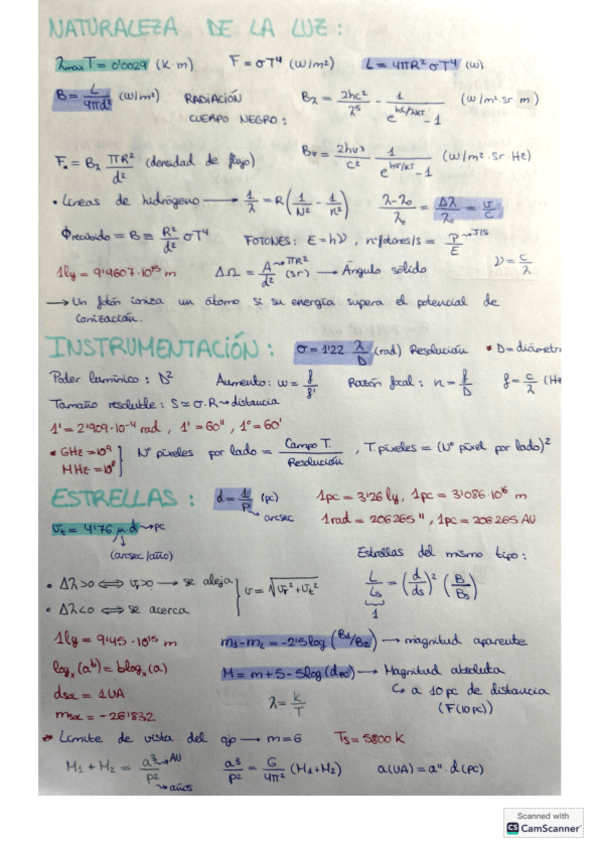 NATURALEZA DE LA LUZ:
λmax T = 0'0029 (K·m)   F = σT⁴ (W/m²)   L = 4πR²σT⁴ (W)
B = L/4πd² (W/m²)   RADIACIÓN CUERPO NEGRO:   Bλ = 2hc²/λ⁵ · 1/(e^(hc/λKT) - 1)   (W/m²·sr m)
Bν = 2hν³/c² · 1/(e^(hν/KT) - 1)   (W/m²·sr·Hz)
F₀ = Bλ πR²/d² (densidad de flujo)
• Líneas de hidrógeno → 1/λ = R(1/N² - 1/n²)   λ-λ₀/λ₀ = Δλ/λ₀ = v/c
Φrecibido = B = R²/d² σT⁴   FOTONES: E = hν, nºfotones/s = P/E → J/s
1ly = 9'4607·10¹⁵ m   ΔΩ = A/d² (sr) → Ángulo sólido   A → πR²   ν = c/λ
→ Un fotón ioniza un átomo si su energía supera el potencial de
ionización.
INSTRUMENTACIÓN:   σ = 1'22 λ/D (rad) Resolución   * D = diámetr
Poder lumínico: D²   Aumento: w = f/f'   Razón focal: n = f/D   f = c/λ (H
Tamaño resoluble: S ≃ σ·R → distancia
1' = 2'909·10⁻⁴ rad, 1' = 60", 1º = 60'
* GHz = 10⁹
MHz = 10⁶
Nº píxeles por lado = Campo T./Resolución, T. píxeles = (Nº píxel por lado)²
ESTRELLAS:   d = 1/p (pc) → arcsec   1pc = 3'26 ly, 1pc = 3'086·10¹⁶ m
vt = 4'76 μ d → pc   1rad = 206265", 1pc = 206265 AU
(arcsec/año)   Estrellas del mismo tipo:
• Δλ>0 ⟺ vr>0 → se aleja
• Δλ<0 ⟺ se acerca
v = √(vr² + vt²)   L/Ls = (d/ds)² (B/Bs)
1
1ly = 9'45·10¹⁵ m   m₁-m₂ = -2'5log(B₁/B₂) → magnitud aparente
logx(aᵇ) = b logx(a)   M = m+5-5log(dpc) → Magnitud absoluta
dsol = 1UA   λ = k/T   ↳ a 10pc de distancia
msol = -26'832   (F(10pc))
* Límite de vista del ojo → m=6   Ts = 5800 K
M₁ + M₂ = a³/P²   a³ → AU   P² → años   a³/P² = G/4π² (M₁+M₂)   a(UA) = a"·d(pc)
Scanned with
CS CamScanner